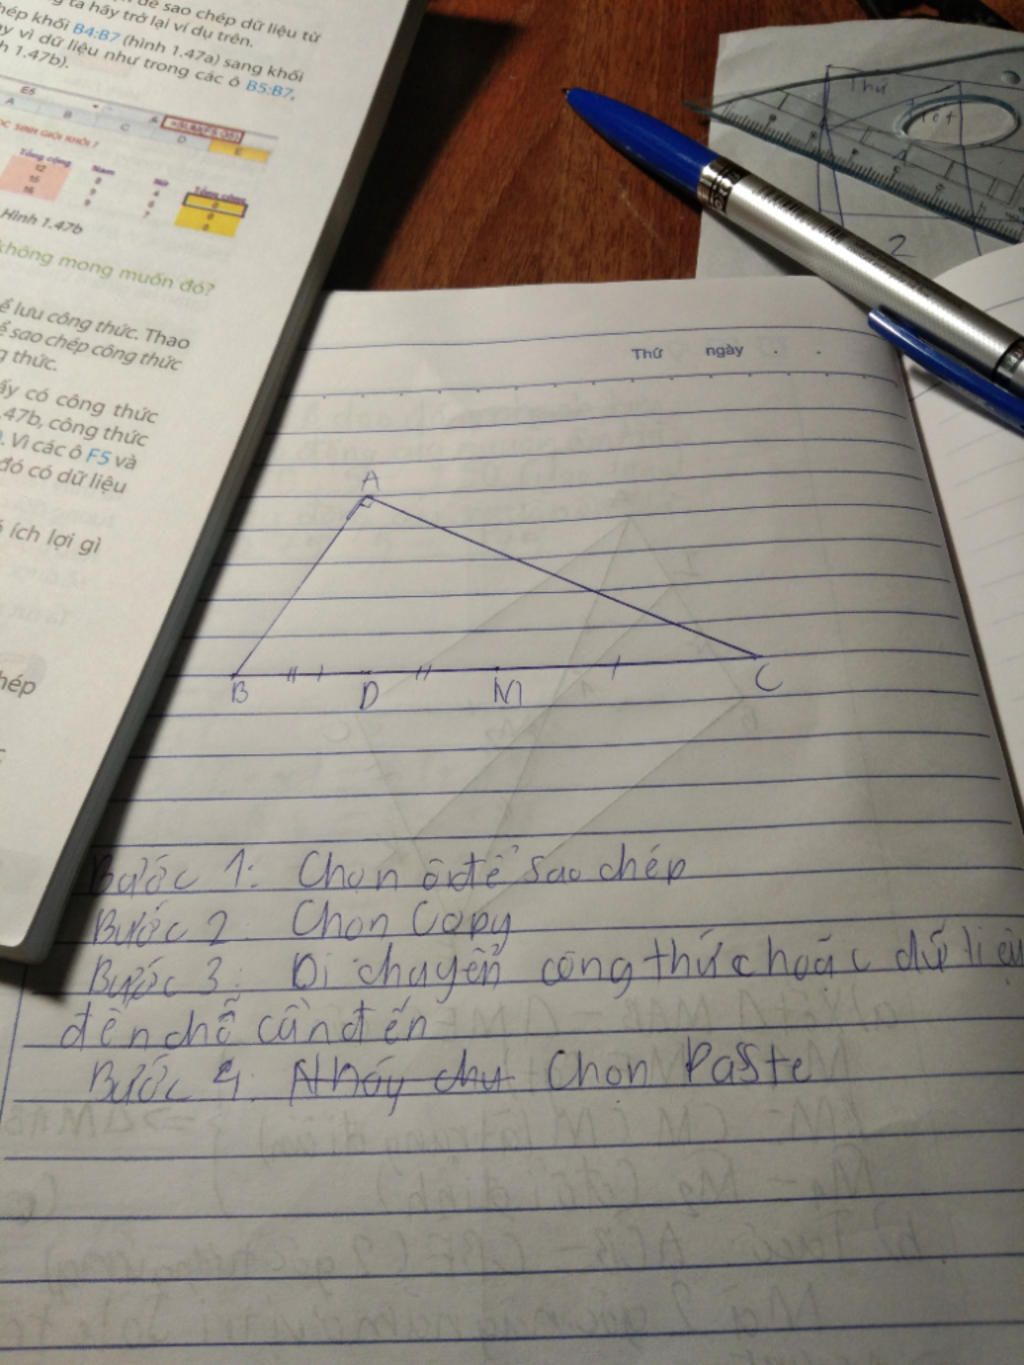 để sao chép dữ liệu từ
ta hãy trở lại ví dụ trên.
khối B4:B7 (hình 1.47a) sang khối
vì dữ liệu như trong các ô B5:B7,
1.47b).
E5
A B C D E
SINH GIỎI KHỐI 7
Tổng cộng Nam Nữ Tổng cộng
12 8 4 0
15 9 6 0
16 9 7 0
Hình 1.47b
không mong muốn đó?
lưu công thức. Thao
sao chép công thức
thức.
có công thức
.47b, công thức
. Vì các ô F5 và
đó có dữ liệu
ích lợi gì
hép
Thứ
2
Thứ ngày
A
B D M C
Bước 1: Chọn ô để sao chép
Bước 2: Chọn Copy
Bước 3: Di chuyển công thức hoặc dữ liệu
đến chỗ cần đến
Bước 4: Nháy chu Chọn Paste